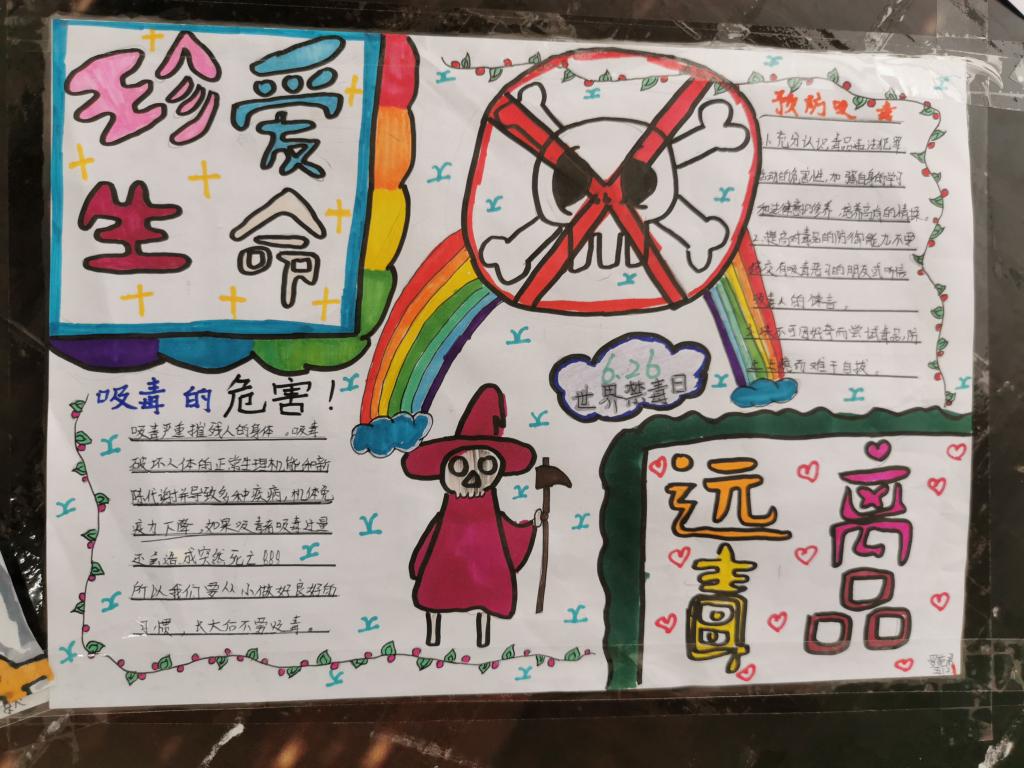 珍爱
生命
吸毒的危害!
吸毒严重摧残人的身体。吸毒
破坏人体的正常生理机能和新
陈代谢并导致多种疾病,机体免
疫力下降,如果吸毒者吸毒过量
还会造成突然死亡!!!
所以我们要从小做好良好的
习惯,长大后不要吸毒。
6.26
世界禁毒日
预防吸毒
1.充分认识毒品违法犯罪
活动的危害性,加强自身的学习
培养高尚的情操
2.提高对毒品的防御能力不要
结交有吸毒恶习的朋友或听信
吸毒人的谗言。
3.决不可因好奇而尝试毒品,防
止上瘾而难于自拔。
远离
毒品